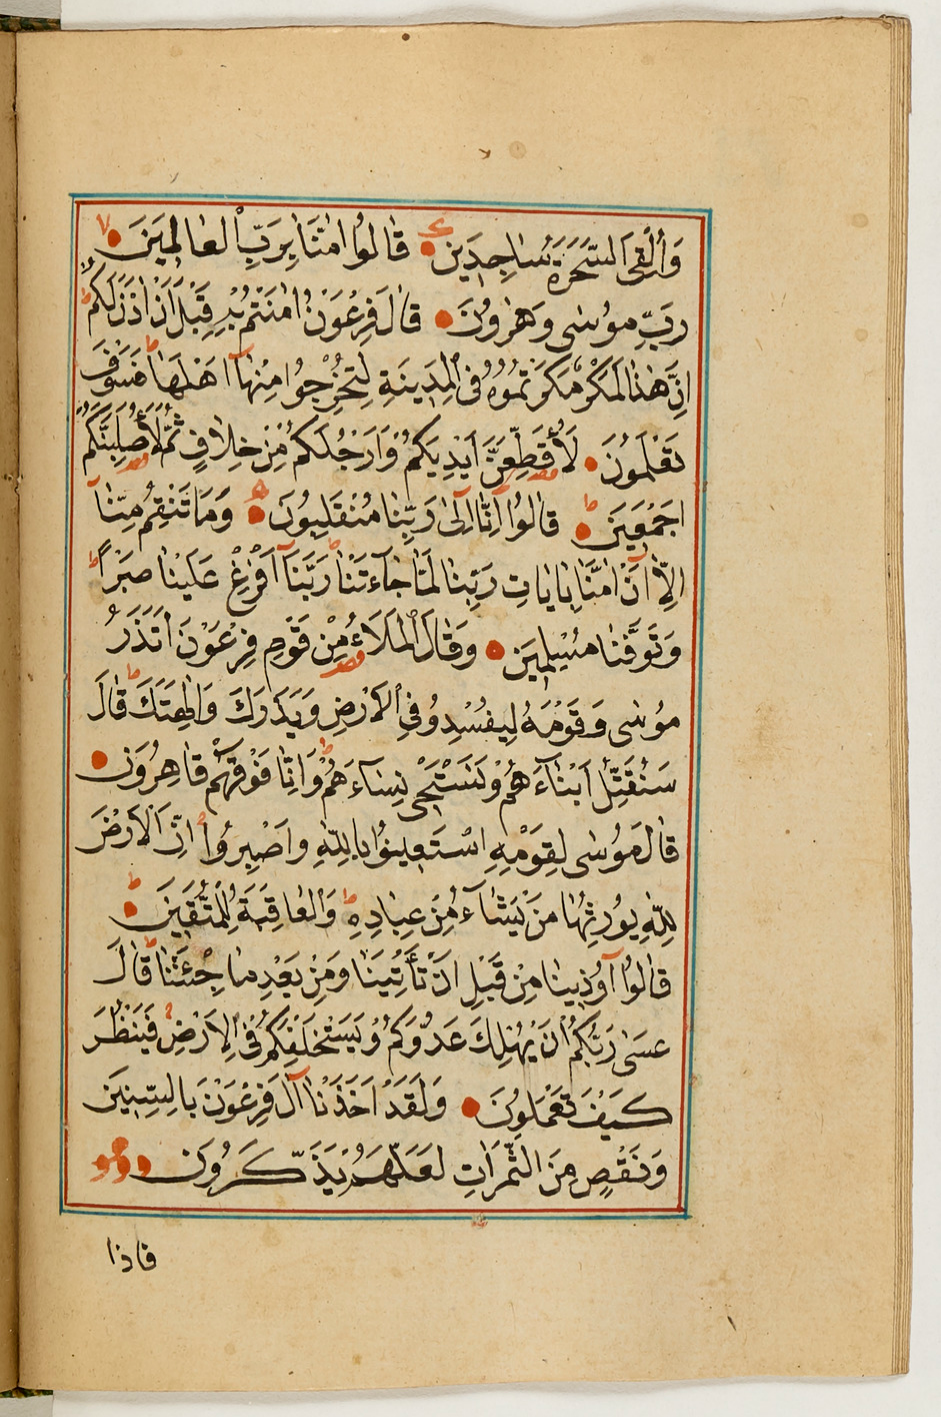 وَأُلْقِيَ السَّحَرَةُ سَاجِدِينَ قَالُوا اٰمَنَّا بِرَبِّ الْعَالَمِينَ
رَبِّ مُوسٰى وَهٰرُونَ قَالَ فِرْعَوْنُ اٰمَنْتُمْ بِهِ قَبْلَ اَنْ اٰذَنَ لَكُمْ
اِنَّ هٰذَا لَمَكْرٌ مَكَرْتُمُوهُ فِي الْمَدِينَةِ لِتُخْرِجُوا مِنْهَا اَهْلَهَا فَسَوْفَ
تَعْلَمُونَ لَأُقَطِّعَنَّ اَيْدِيَكُمْ وَاَرْجُلَكُمْ مِنْ خِلَافٍ ثُمَّ لَأُصَلِّبَنَّكُمْ
اَجْمَعِينَ قَالُوا اِنَّا اِلٰى رَبِّنَا مُنْقَلِبُونَ وَمَا تَنْقِمُ مِنَّا
اِلَّا اَنْ اٰمَنَّا بِاٰيَاتِ رَبِّنَا لَمَّا جَاءَتْنَا رَبَّنَا اَفْرِغْ عَلَيْنَا صَبْرًا
وَتَوَفَّنَا مُسْلِمِينَ وَقَالَ الْمَلَأُ مِنْ قَوْمِ فِرْعَوْنَ اَتَذَرُ
مُوسٰى وَقَوْمَهُ لِيُفْسِدُوا فِي الْاَرْضِ وَيَذَرَكَ وَاٰلِهَتَكَ قَالَ
سَنُقَتِّلُ اَبْنَاءَهُمْ وَنَسْتَحْيِ نِسَاءَهُمْ وَاِنَّا فَوْقَهُمْ قَاهِرُونَ
قَالَ مُوسٰى لِقَوْمِهِ اسْتَعِينُوا بِاللّٰهِ وَاصْبِرُوا اِنَّ الْاَرْضَ
لِلّٰهِ يُورِثُهَا مَنْ يَشَاءُ مِنْ عِبَادِهِ وَالْعَاقِبَةُ لِلْمُتَّقِينَ
قَالُوا اُوذِينَا مِنْ قَبْلِ اَنْ تَأْتِيَنَا وَمِنْ بَعْدِ مَا جِئْتَنَا قَالَ
عَسٰى رَبُّكُمْ اَنْ يُهْلِكَ عَدُوَّكُمْ وَيَسْتَخْلِفَكُمْ فِي الْاَرْضِ فَيَنْظُرَ
كَيْفَ تَعْمَلُونَ وَلَقَدْ اَخَذْنَا اٰلَ فِرْعَوْنَ بِالسِّنِينَ
وَنَقْصٍ مِنَ الثَّمَرَاتِ لَعَلَّهُمْ يَذَّكَّرُونَ
فاذا